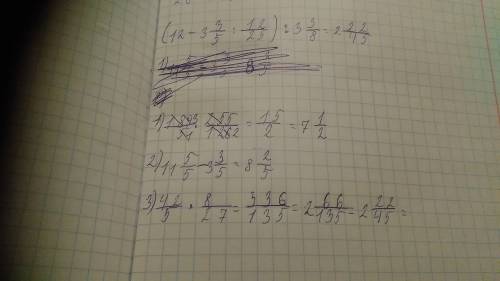 (12 - 3 3/5 : 12/25) : 3 3/8 = 2 22/45
1)
= 15/2 = 7 1/2
2) 11 5/5 - 3 3/5 = 8 2/5
3) 42/5 · 8/27 = 336/135 = 2 66/135 = 2 22/45 =